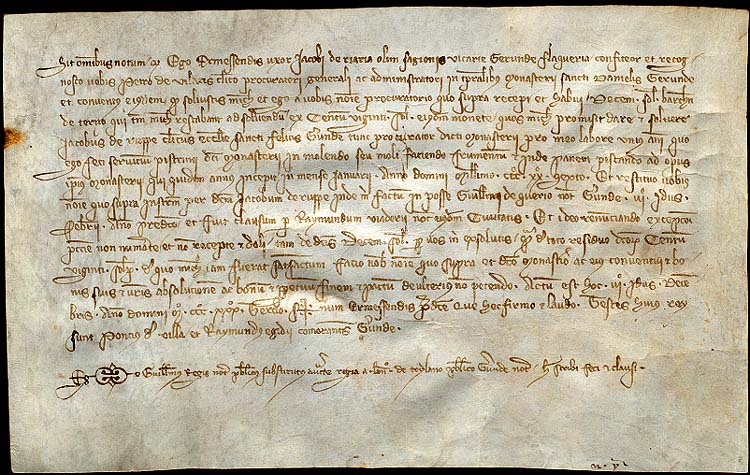 Sit omibus notum q Ego Ermessendis uxor Jacobi de riaria olim sagionis vicarie Gerunde flaqueria confiteor et recog
nosco vobis Petro de vilaris clico procuratori generali ac administratori in tpralibus Monasterii sancti Danielis Gerunde
et conventui eiusdem q solvistis mich et ego a vobis noie procuratorio quo supra recepi et habui Decem sol barchn
de terno qui im mich restabant ad solvendu ex Centu viginti sol eiusdem monete quos mich promisit dare et solvere
Jacobus de ruppe clicus ecclie sancti felicis Gunde tunc procurator dicti monasterii pro meo labore unius anni quo
ego feci servicium pistrini dicti monasterii in molendo seu moli faciendo frumentum & inde panem pistando ad opus
ipius monasterii qui quidem annus incepit in mense januarii Anno domini Millimo ccc xx Et restituo vobis
noie quo supra instrm per dcm Jacobum de ruppe inde m factum in posse Guillmi de not Gunde vii idus
febrii Ano predco et fuit clausum p Raymundum viaderii not eiusdem Civitatis Et ideo renunciando excepcoi
pccie non numate et no recepte & doli tam de dcis Decem sol p vos m exsolutis q d toto residuo dcor Centu
viginti sol d quo mich iam fuerat satisfactum facio vob noie quo supra et dco monastio ac eius conventui & bo
nis suis & vris absolucione ac bonu & ppetuum finem & pactu de ulterius no petendo Actu est hoc vii idus Decem
bris Ano domini m ccc xx Sig+num Ermessendis pdce que hoc firmo et laudo Testes huius rey
sunt Poncius d villa et Raymundus egidii comorantes Gunde
Ego Guillms Regis not pblicus substitutus aucte regia a de toylano pblico Gunde not h scribi feci & clausi